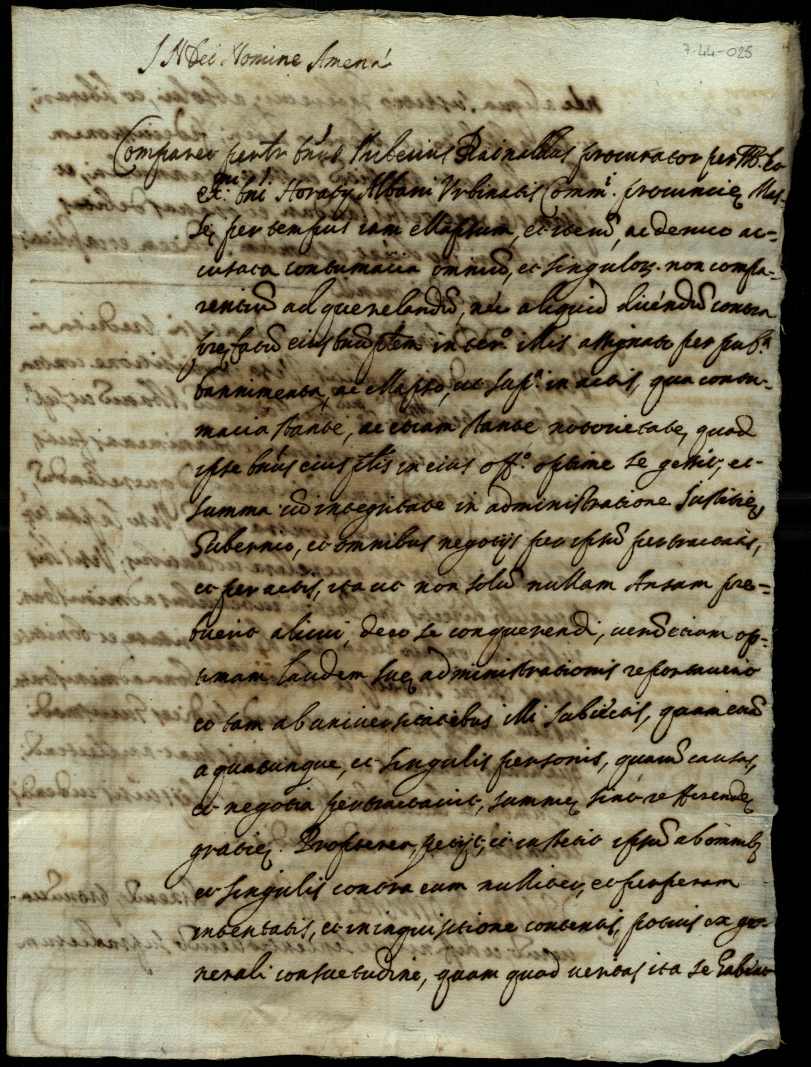 7-44-025
IN Dei Nomine Amen
Comparet perit. Dnus Tiberius Rainaldus procurator per Ill. et
ex. Dni Horatij Albani Urbinatis Commi. provincię Mas-
sę per tempus iam elapsum, et iterũ, ac denuo ac-
cusata contumacia omniũ, et singulor. non compa-
rentiũ ad querelandũ, nec aliquid dicendũ contra
prefatũ eius Dnũ Plem in ter.o illis assignato per pub.a
bannimenta, ac elapso, ut sup.a in actis, qua contu-
macia stante, ac etiam stante notorietate, quod
ipse Dnus eius Plis in eius off.o optime se gessit, et
summa cũ integritate in administratione Justitię
Gubernio, et omnibus negotijs per ipsũ pertractatis,
et peractis, ita ut non solũ nullam Ansam pre-
buerit alicui, de eo se conquerendi, uerũ etiam op-
timam laudem suę administrationis reportauerit
et tam ab uniuersitatibus illi subiectis, quam etiã
a quacunque, et singulis personis, quarũ causas,
et negotia pertractauit, summę sint refferendę
gratię. Propterea, petijt, et institit ipsũ ab omnib.
et singulis contra eum nulliter, et perperam
intentatis, et in inquisitione contentis, potius ex ge-
nerali consuetudine, quam quod ueritas ita se habeat